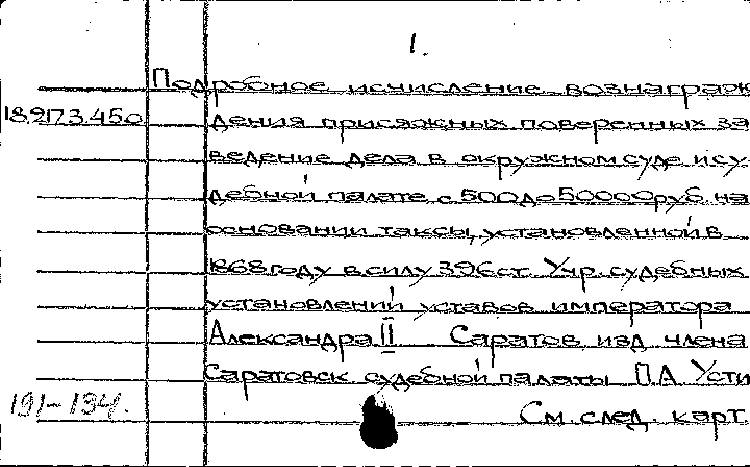 1.
Подробное исчисление вознаграж
18.9173.450 дения присяжных поверенных за
ведение дела в окружном суде и су
дебной палате с 500 до 50000 руб. на
основании таксы, установленной в
1868 году в силу 396 ст. Учр. судебных
установлений уставов императора
Александра II Саратов изд члена
Саратовск судебной палаты П.А Усти
191-134. См. след. карт.